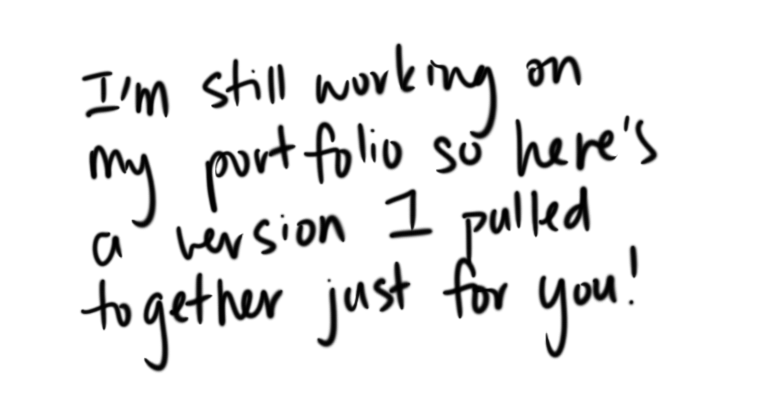 I'm still working on
my portfolio so here's
a version I pulled
together just for you!